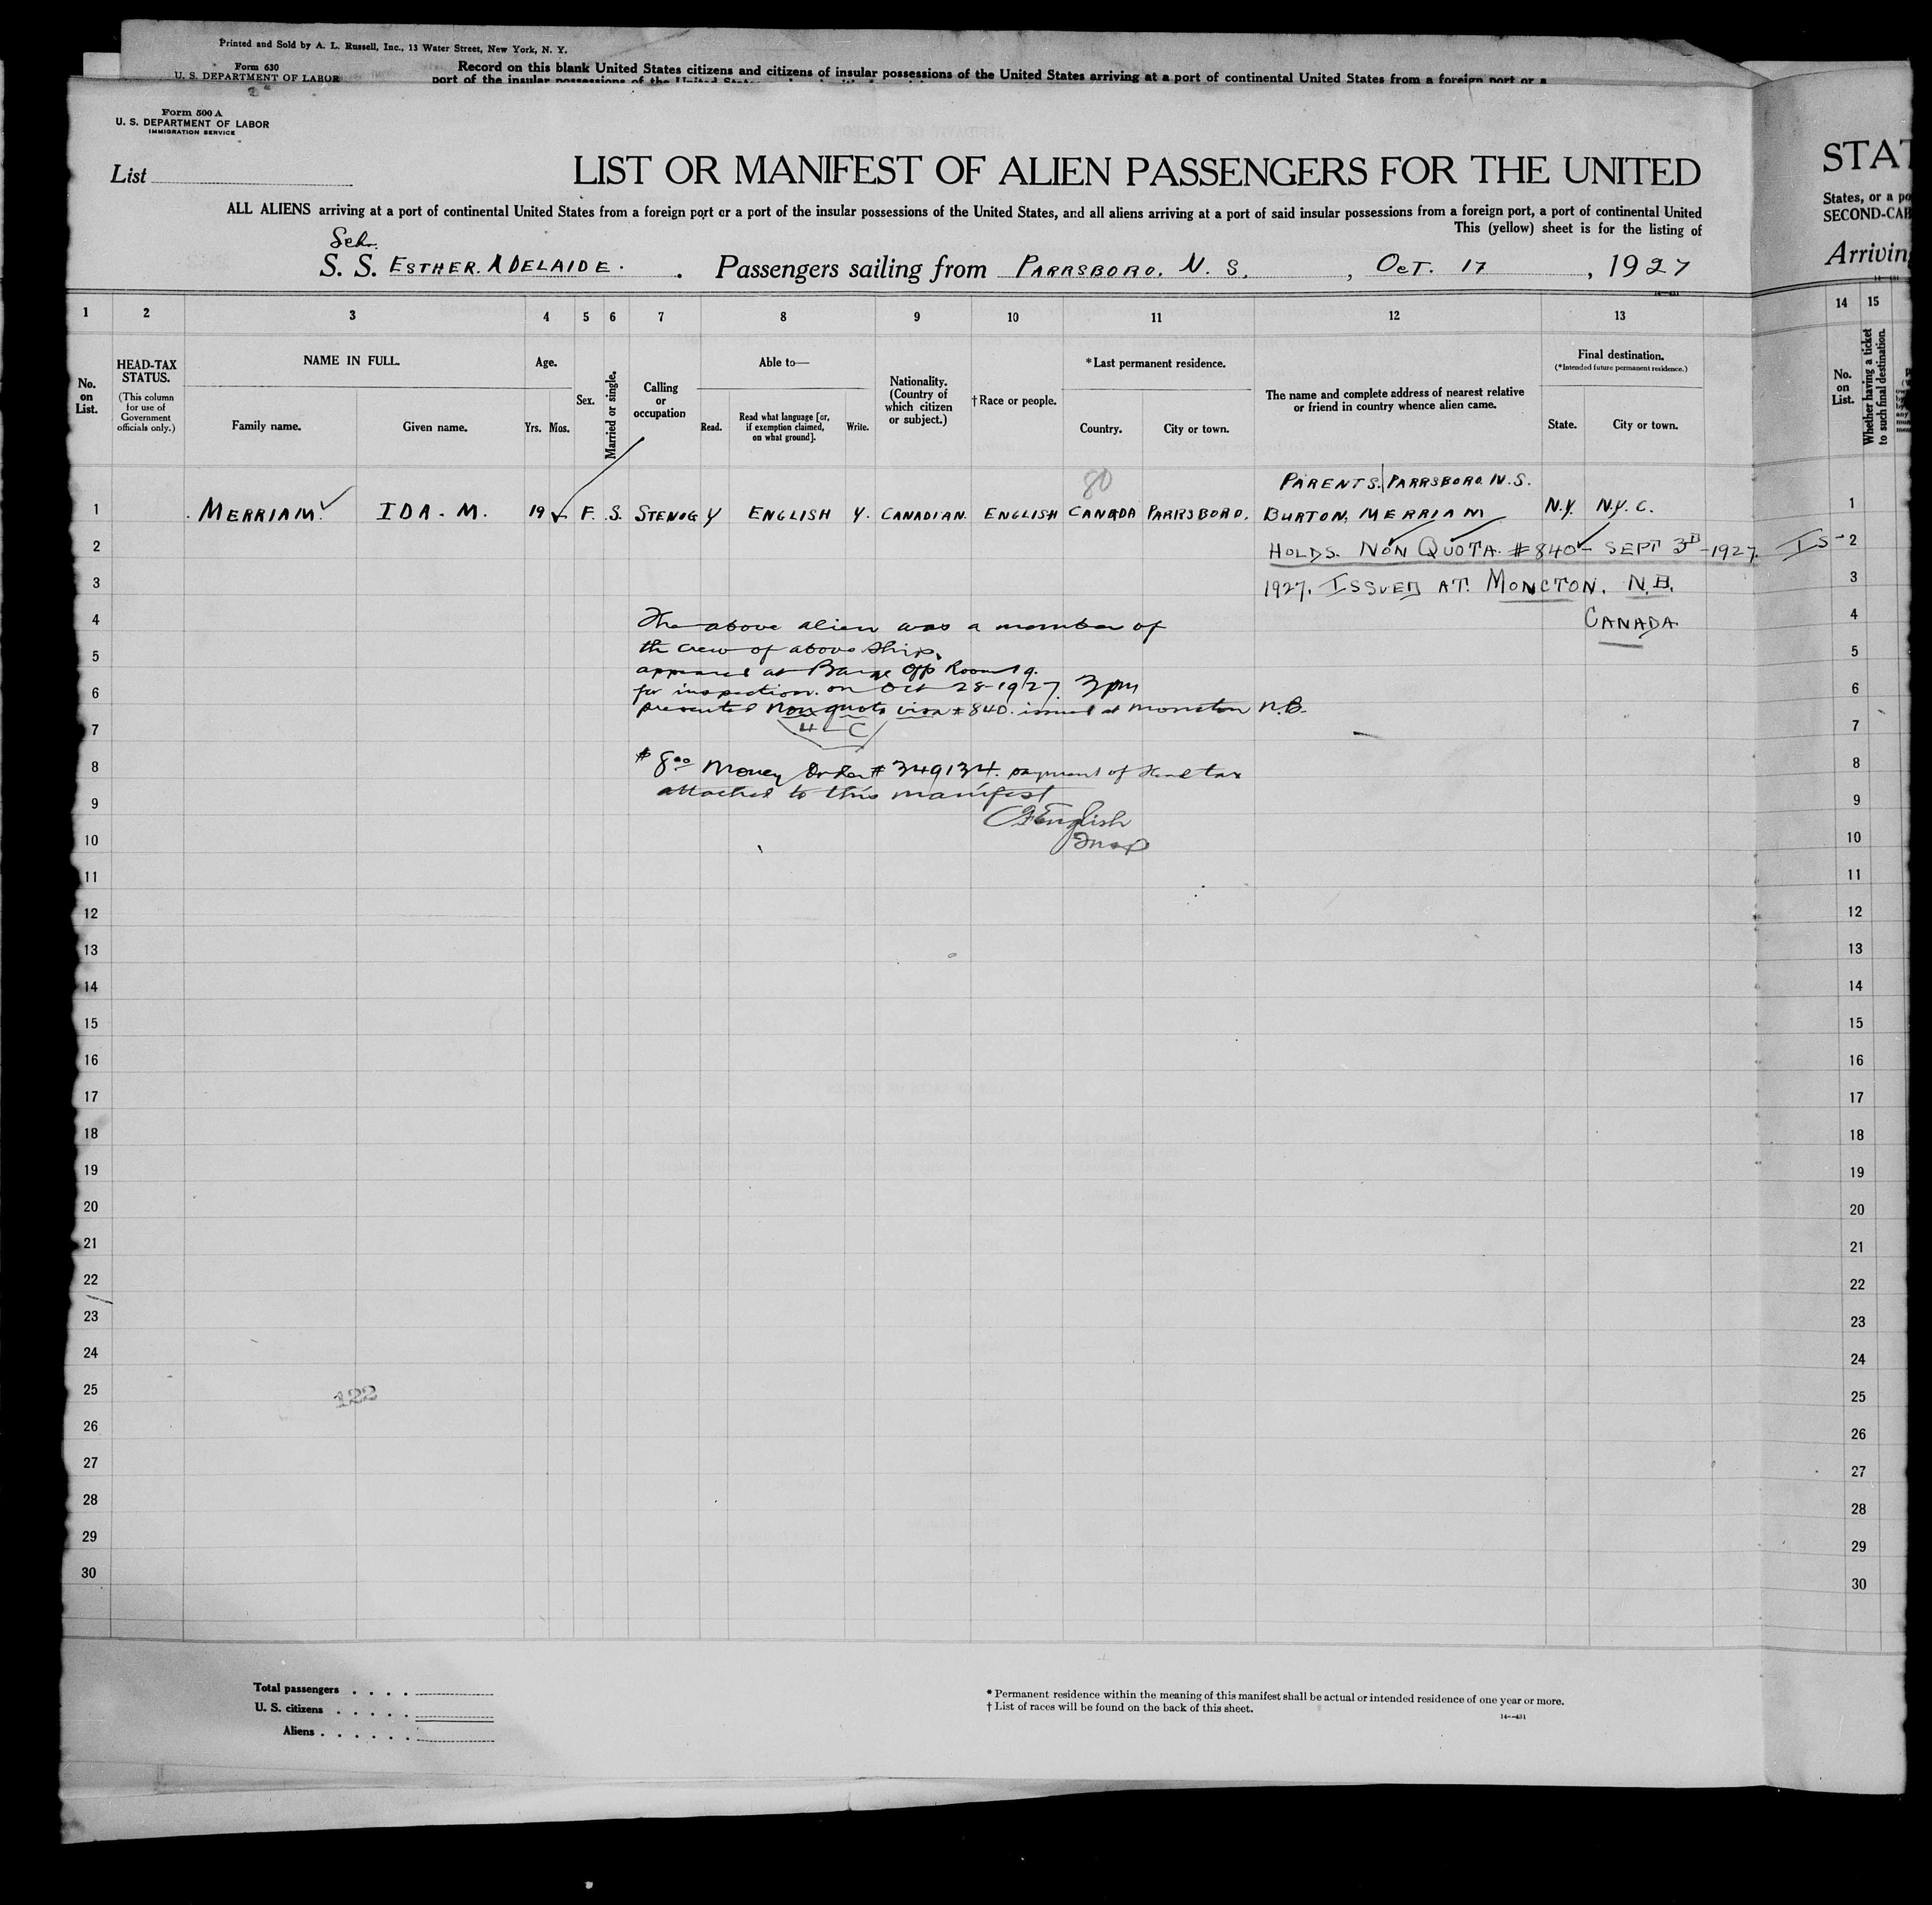 Printed and Sold by A. L. Russell, Inc., 13 Water Street, New York, N. Y.
Form 630
U. S. DEPARTMENT OF LABOR
Record on this blank United States citizens and citizens of insular possessions of the United States arriving at a port of continental United States from a foreign port or a
port of the insular possessions of the United
Form 500 A
U. S. DEPARTMENT OF LABOR
IMMIGRATION SERVICE
List
LIST OR MANIFEST OF ALIEN PASSENGERS FOR THE UNITED
STAT
ALL ALIENS arriving at a port of continental United States from a foreign port or a port of the insular possessions of the United States, and all aliens arriving at a port of said insular possessions from a foreign port, a port of continental United
States, or a po
This (yellow) sheet is for the listing of
SECOND-CAB
Sch.
S. S. ESTHER. ADELAIDE. . Passengers sailing from PARRSBORO. N. S. , OCT. 17 , 1927
Arriving
1 2 3 4 5 6 7 8 9 10 11 12 13 14 15
No. on List.
HEAD-TAX STATUS.
(This column for use of Government officials only.)
NAME IN FULL.
Family name. Given name.
Age.
Yrs. Mos.
Sex.
Married or single.
Calling or occupation
Able to—
Read. Read what language [or, if exemption claimed, on what ground]. Write.
Nationality. (Country of which citizen or subject.)
†Race or people.
*Last permanent residence.
Country. City or town.
The name and complete address of nearest relative or friend in country whence alien came.
Final destination.
(*Intended future permanent residence.)
State. City or town.
No. on List.
Whether having a ticket to such final destination.
80
PARENTS. PARRSBORO. N. S.
1 MERRIAM IDA. M. 19 F. S. STENOG Y ENGLISH Y. CANADIAN. ENGLISH CANADA PARRSBORO. BURTON, MERRIAM N.Y. N.Y. C. 1
2 HOLDS. NON QUOTA. #840 - SEPT 3D - 1927. IS- 2
3 1927. ISSUED AT. MONCTON. N.B. 3
4 CANADA 4
The above alien was a member of
5 the crew of above ship. 5
appeared at Barge Off Room 19.
6 for inspection. on Oct 28-1927. 3 pm 6
presented Non quota visa #840. issued at Moncton N.B.
7 4 - C 7
8 $8.00 Money Order # 349134. payment of Head tax 8
9 attached to this manifest 9
English
10 Insp 10
11 11
12 12
13 13
14 14
15 15
16 16
17 17
18 18
19 19
20 20
21 21
22 22
23 23
24 24
25 122 25
26 26
27 27
28 28
29 29
30 30
Total passengers . . . .
U. S. citizens . . . . .
Aliens . . . . . .
* Permanent residence within the meaning of this manifest shall be actual or intended residence of one year or more.
† List of races will be found on the back of this sheet.
14—431